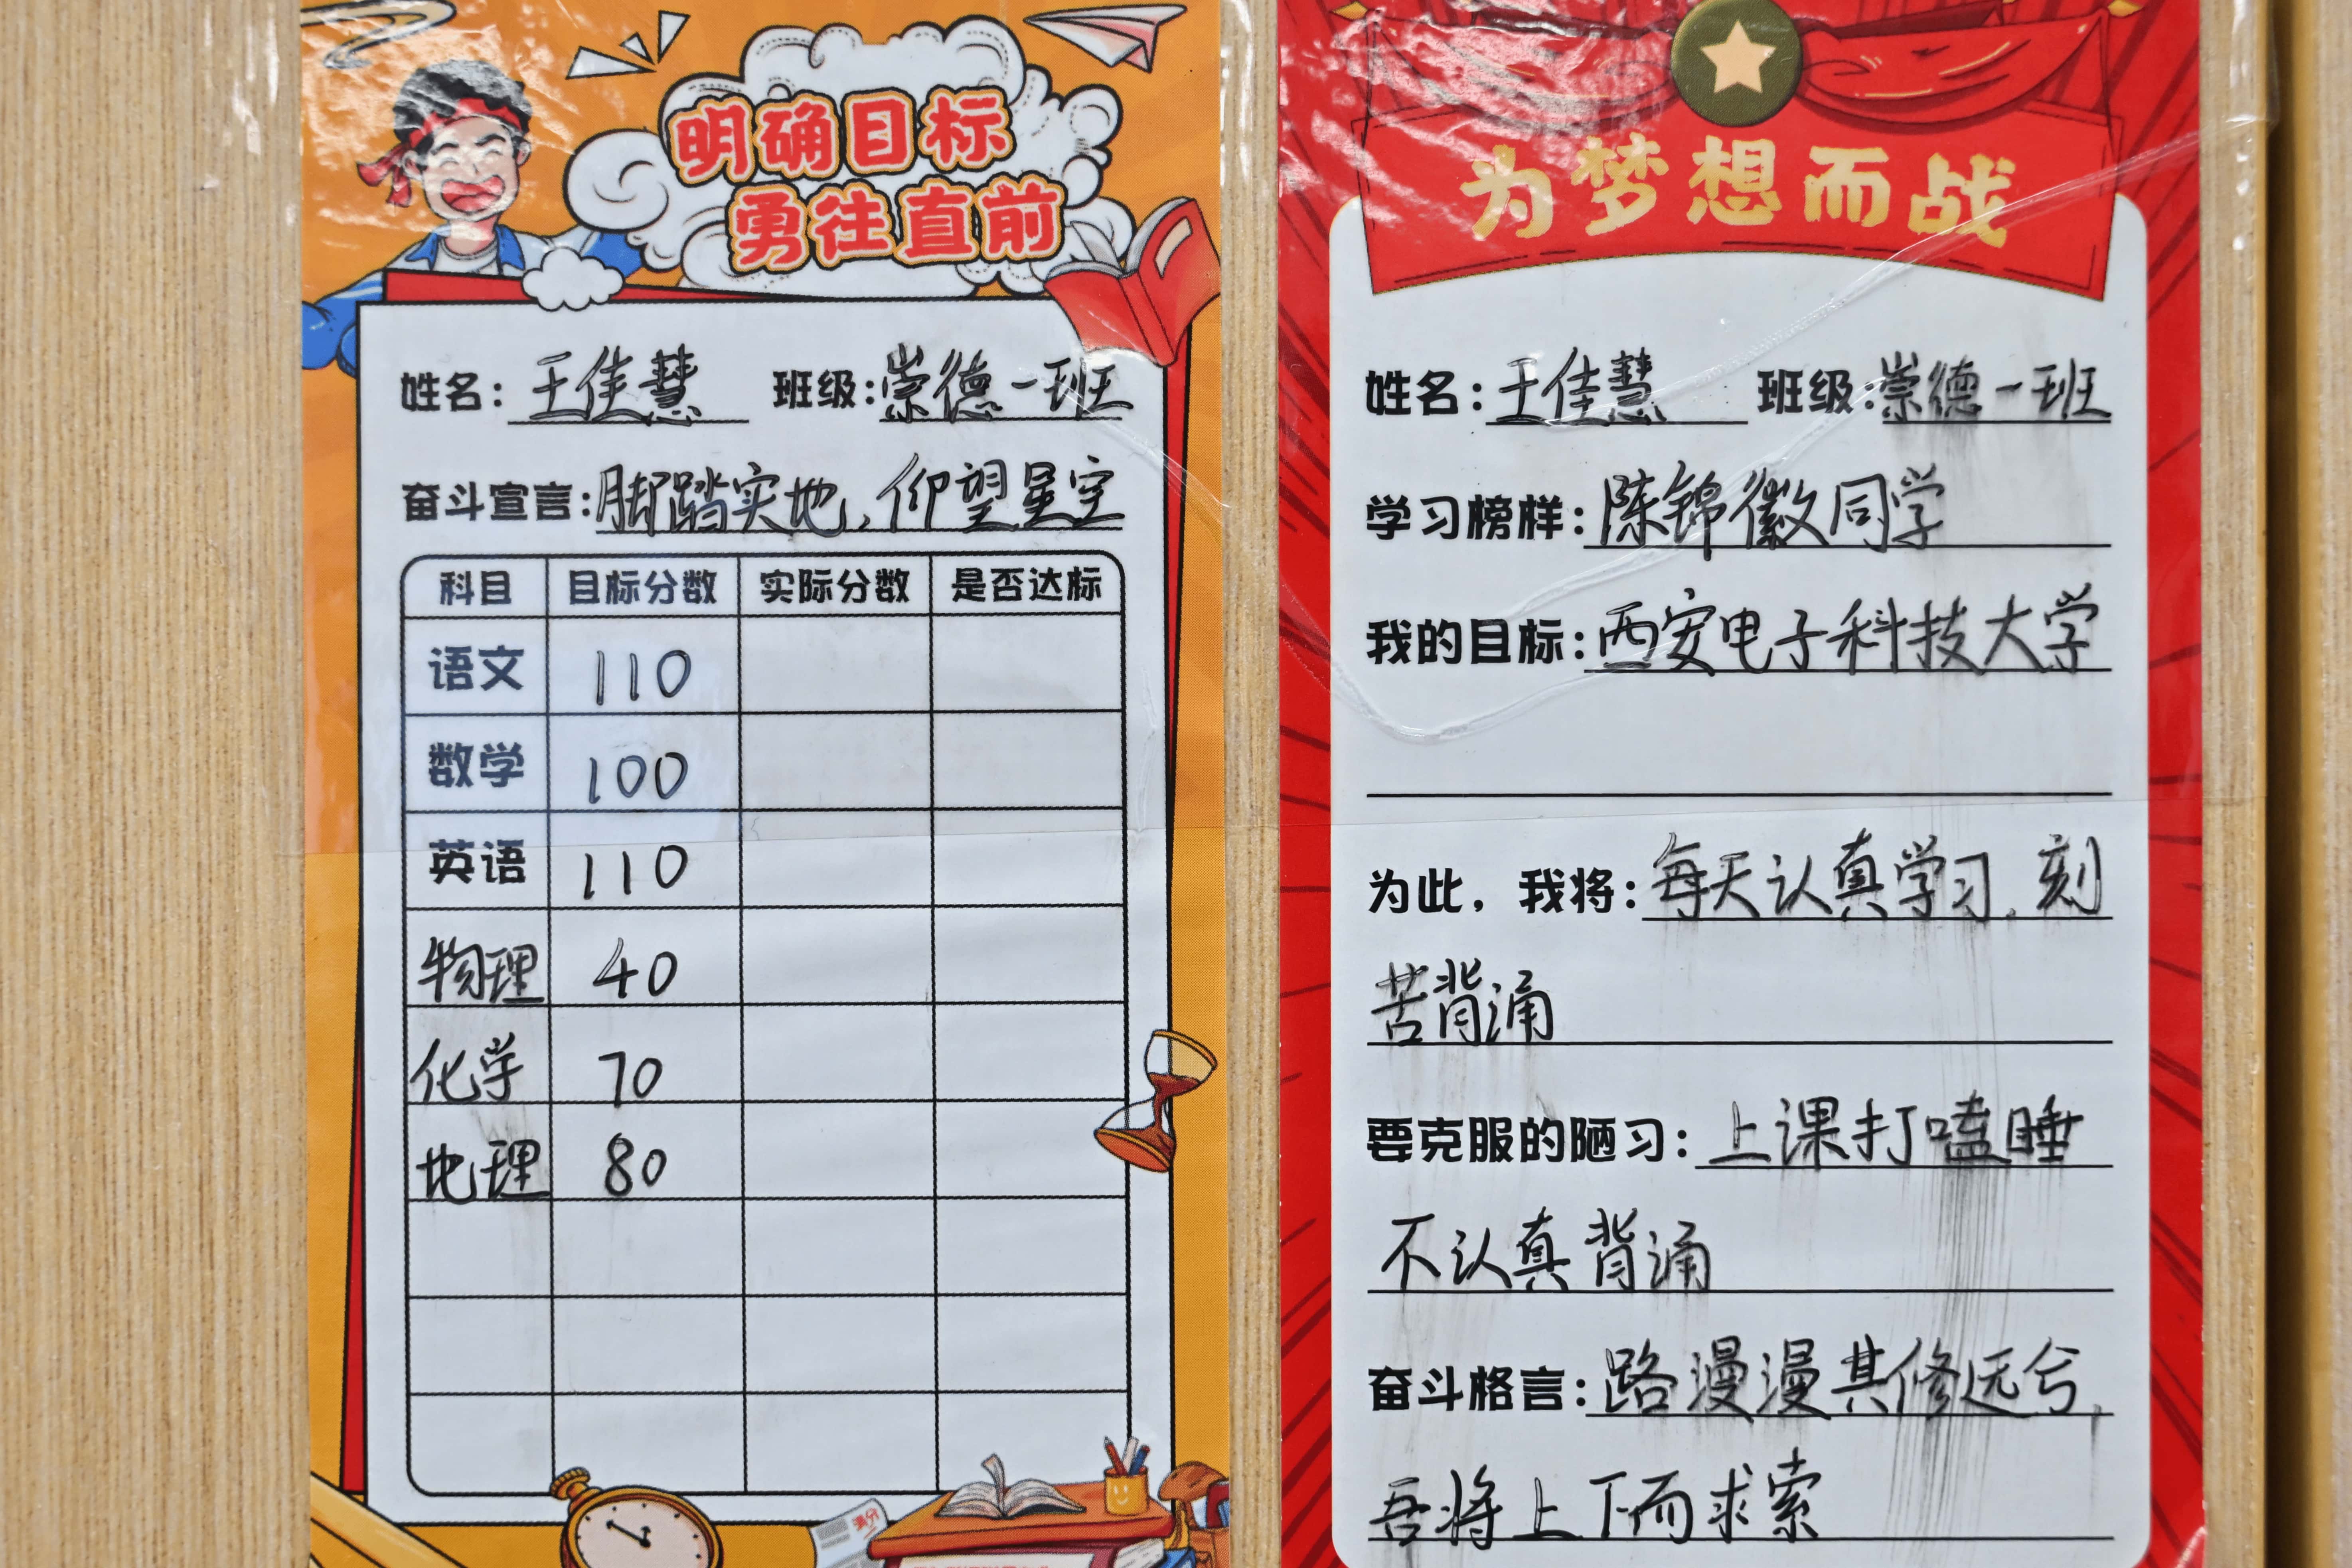 明确目标
勇往直前
姓名：王佳慧 班级：崇德一班
奋斗宣言：脚踏实地，仰望星空
科目 目标分数 实际分数 是否达标
语文 110
数学 100
英语 110
物理 40
化学 70
地理 80
为梦想而战
姓名：王佳慧 班级：崇德一班
学习榜样：陈锦徽同学
我的目标：西安电子科技大学
为此，我将：每天认真学习，刻
苦背诵
要克服的陋习：上课打嗑睡
不认真背诵
奋斗格言：路漫漫其修远兮，
吾将上下而求索